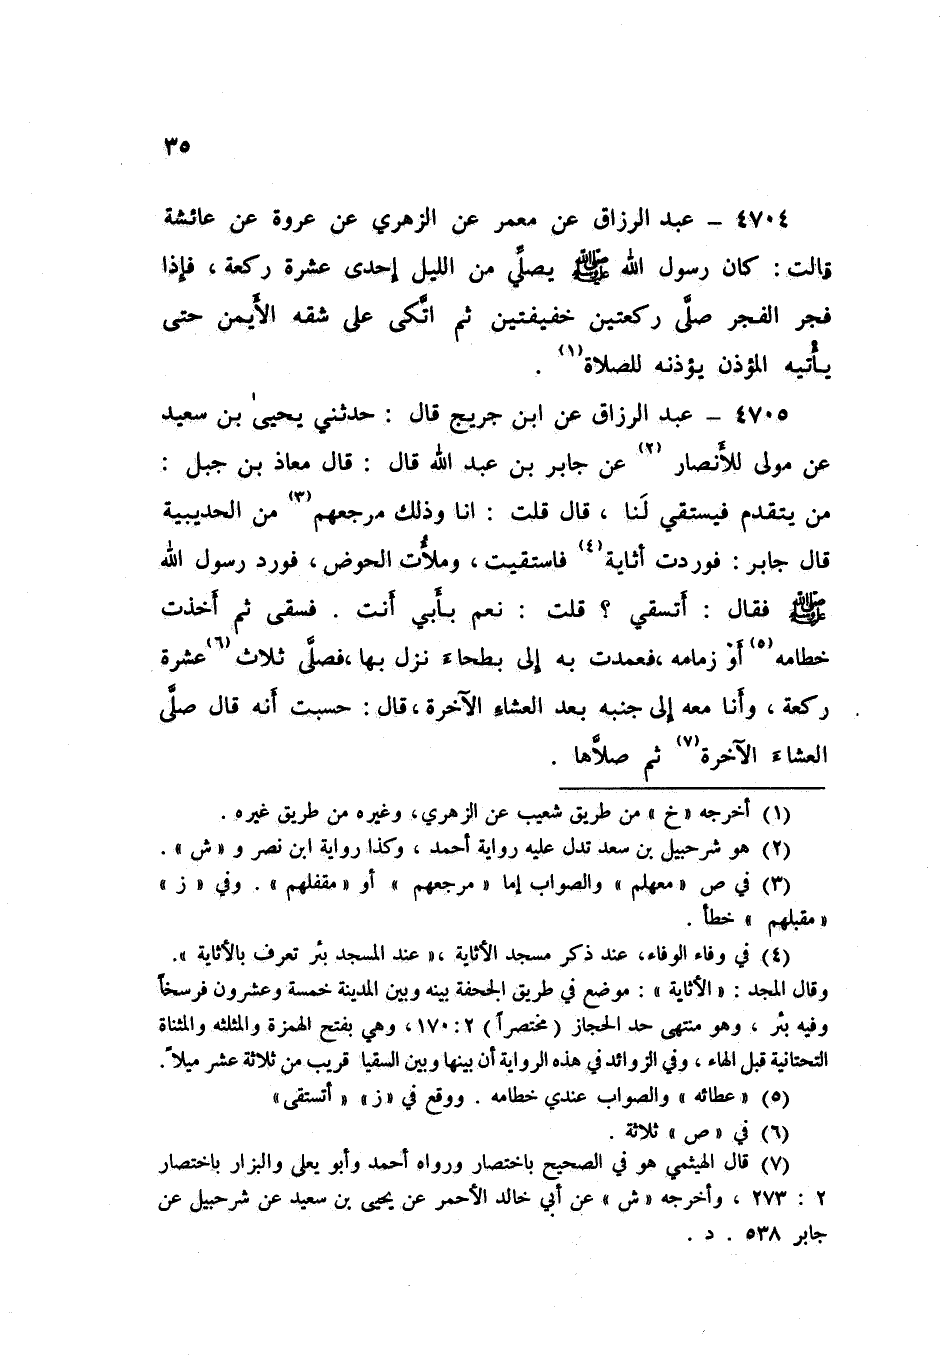 ٣٥
٤٧٠٤ – عبد الرزاق عن معمر عن الزهري عن عروة عن عائشة
قالت : كان رسول الله ﷺ يصلّي من الليل إحدى عشرة ركعة ، فإذا
فجر الفجر صلَّى ركعتين خفيفتين ثم اتَّكى على شقه الأَيمن حتى
يأْتيه المؤذن يؤذنه للصلاة(١) .
٤٧٠٥ – عبد الرزاق عن ابن جريج قال : حدثني يحيىٰ بن سعيد
عن مولى للأَنصار (٢) عن جابر بن عبد الله قال : قال معاذ بن جبل :
من يتقدم فيستقي لَنا ، قال قلت : انا وذلك مرجعهم(٣) من الحديبية
قال جابر : فوردت أثاية(٤) فاستقيت ، وملأْت الحوض ، فورد رسول الله
ﷺ فقال : أَتسقي ؟ قلت : نعم بأَبي أَنت . فسقى ثم أَخذت
خطامه(٥) أَوْ زمامه ،فعمدت به إلى بطحاء نزل بها ،فصلَّى ثلاث(٦) عشرة
ركعة ، وأَنا معه إلى جنبه بعد العشاء الآخرة ،قال : حسبت أَنه قال صلَّى
العشاء الآخرة(٧) ثم صلاَّها .
(١) أخرجه «خ» من طريق شعيب عن الزهري، وغيره من طريق غيره .
(٢) هو شرحبيل بن سعد تدل عليه رواية أحمد ، وكذا رواية ابن نصر و «ش» .
(٣) في ص «معهلم» والصواب إما «مرجعهم» أو «مقفلهم» . وفي «ز»
«مقبلهم» خطأ .
(٤) في وفاء الوفاء، عند ذكر مسجد الأثاية ،« عند المسجد بئر تعرف بالأثاية ».
وقال المجد : «الأثاية» : موضع في طريق الجحفة بينه وبين المدينة خمسة وعشرون فرسخاً
وفيه بئر ، وهو منتهى حد الحجاز (مختصراً) ٢ :١٧٠، وهي بفتح الهمزة والمثلثه والمثناة
التحتانية قبل الهاء ، وفي الزوائد في هذه الرواية أن بينها وبين السقيا قريب من ثلاثة عشر ميلاً.
(٥) «عطائه» والصواب عندي خطامه . ووقع في «ز» «أتستقى»
(٦) في «ص» ثلاثة .
(٧) قال الهيثمي هو في الصحيح باختصار ورواه أحمد وأبو يعلى والبزار باختصار
٢ : ٢٧٣ ، وأخرجه «ش» عن أبي خالد الأحمر عن يحيى بن سعيد عن شرحبيل عن
جابر ٥٣٨ . د .